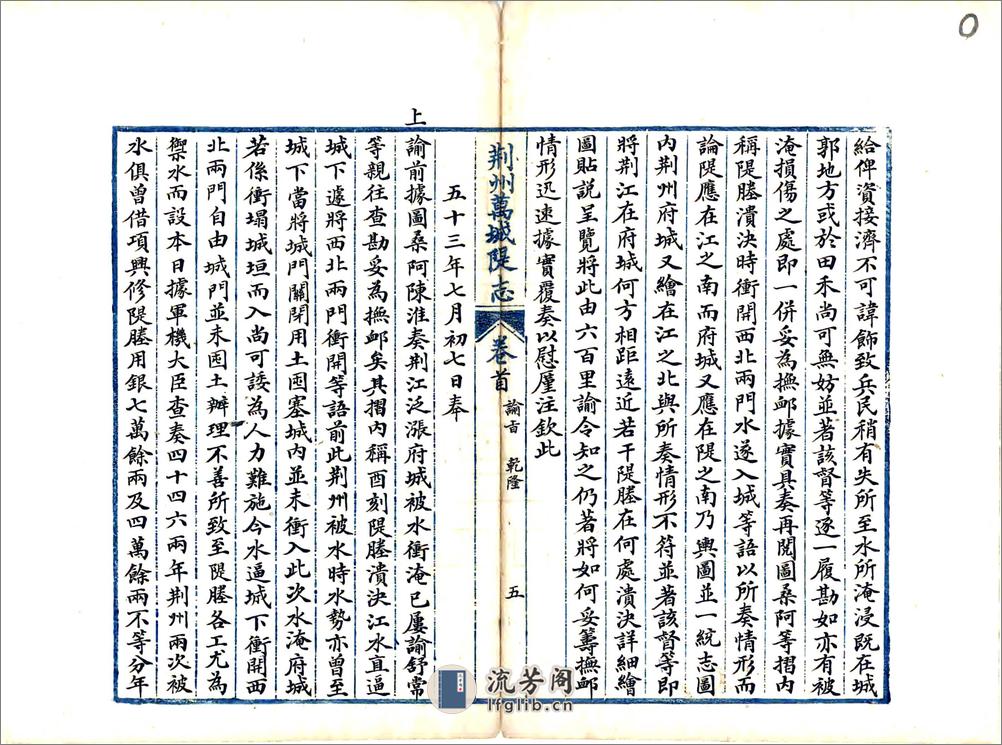 給俾資接濟不可諱飾致兵民稍有失所至水所淹浸既在城
郭地方或於田禾尚可無妨並著該督等逐一履勘如亦有被
淹損傷之處即一併妥為撫邮據實具奏再閱圖桑阿等摺内
稱隄塍潰決時衝開西北兩門水遂入城等語以所奏情形而
論隄應在江之南而府城又應在隄之南乃輿圖並一統志圖
内荆州府城又繪在江之北與所奏情形不符並著該督等即
將荆江在府城何方相距遠近若干隄塍在何處潰決詳細繪
圖貼說呈覽將此由六百里諭令知之仍著將如何妥籌撫邮
情形迅速據實覆奏以慰厪注欽此
荆州萬城隄志 卷首 諭旨 乾隆 五
五十三年七月初七日奉
上諭前據圖桑阿陳淮奏荆江泛漲府城被水衝淹已屢諭舒常
等親往查勘妥為撫邮矣其摺内稱酉刻隄塍潰決江水直逼
城下遽將西北兩門衝開等語前此荆州被水時水勢亦曾至
城下當將城門關閉用土囤塞城内並未衝入此次水淹府城
若係衝塌城垣而入尚可諉為人力難施今水逼城下衝開西
北兩門自由城門並未囤土辨理不善所致至隄塍各工尤為
禦水而設本日據軍機大臣查奏四十四六兩年荆州兩次被
水俱曾借項興修隄塍用銀七萬餘兩及四萬餘兩不等分年
流芳阁
lfglib.cn
0